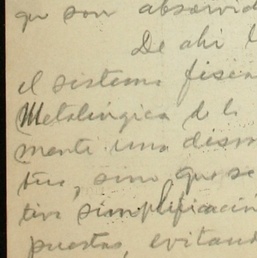 que son absorvid
De ahi l
el sistema fisca
Metalúrgica de la
mente una dism
tus, sino que se
tiva simplificación
puestos, evitand